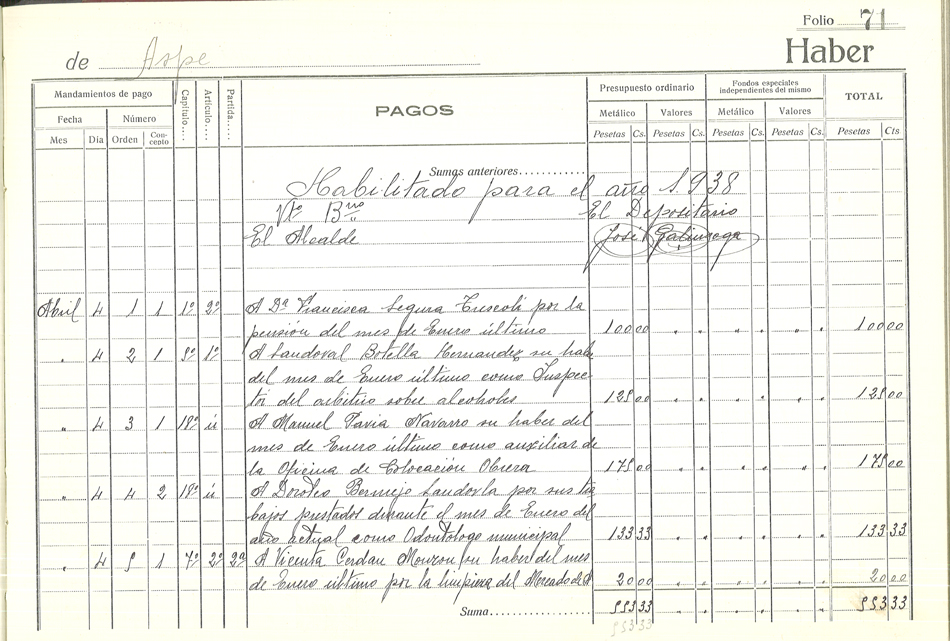 Folio 71
de Aspe
Haber
Mandamientos de pago
Fecha
Número
Mes
Día
Orden
Concepto
Capítulo....
Artículo....
Partida....
PAGOS
Presupuesto ordinario
Fondos especiales independientes del mismo
TOTAL
Metálico
Valores
Metálico
Valores
Pesetas Cs. Pesetas Cs. Pesetas Cs. Pesetas Cs. Pesetas Cts
Sumas anteriores............
Habilitado para el año 1.938
Vto Bno El Depositario
El Alcalde José Galinsoga
Abril 4 1 1 1º 2º A Dª Francisca Segura Truscoli por la
pensión del mes de Enero último 100 00 " " " " " " 100 00
" 4 2 1 5º 1º A Sandoval Botella Hernandez su haber
del mes de Enero último como Inspec-
tor del arbitrio sobre alcoholes 125 00 " " " " " " 125 00
" 4 3 1 18º ú A Manuel Pavia Navarro su haber del
mes de Enero último como auxiliar de
la Oficina de Colocación Obrera 175 00 " " " " " " 175 00
" 4 4 2 18º ú A Doroteo Bermejo por sus tra-
bajos prestados durante el mes de Enero del
año actual como Odontólogo municipal 133 33 " " " " " " 133 33
" 4 5 1 7º 2º 2ª A Vicenta Cerdan Monzon su haber del mes
de Enero último por la limpieza del Mercado de A 20 00 " " " " " " 20 00
Suma.................... 553 33 " " " " " " 553 33
553 33